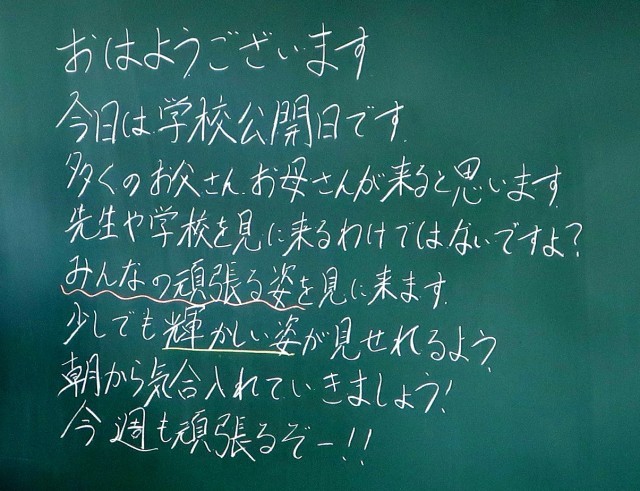 おはようございます
今日は学校公開日です.
多くのお父さん.お母さんが来ると思います.
先生や学校を見に来るわけではないですよ?
みんなの頑張る姿を見に来ます.
少しでも輝かしい姿が見せれるよう.
朝から気合入れていきましょう!
今週も頑張るぞー!!